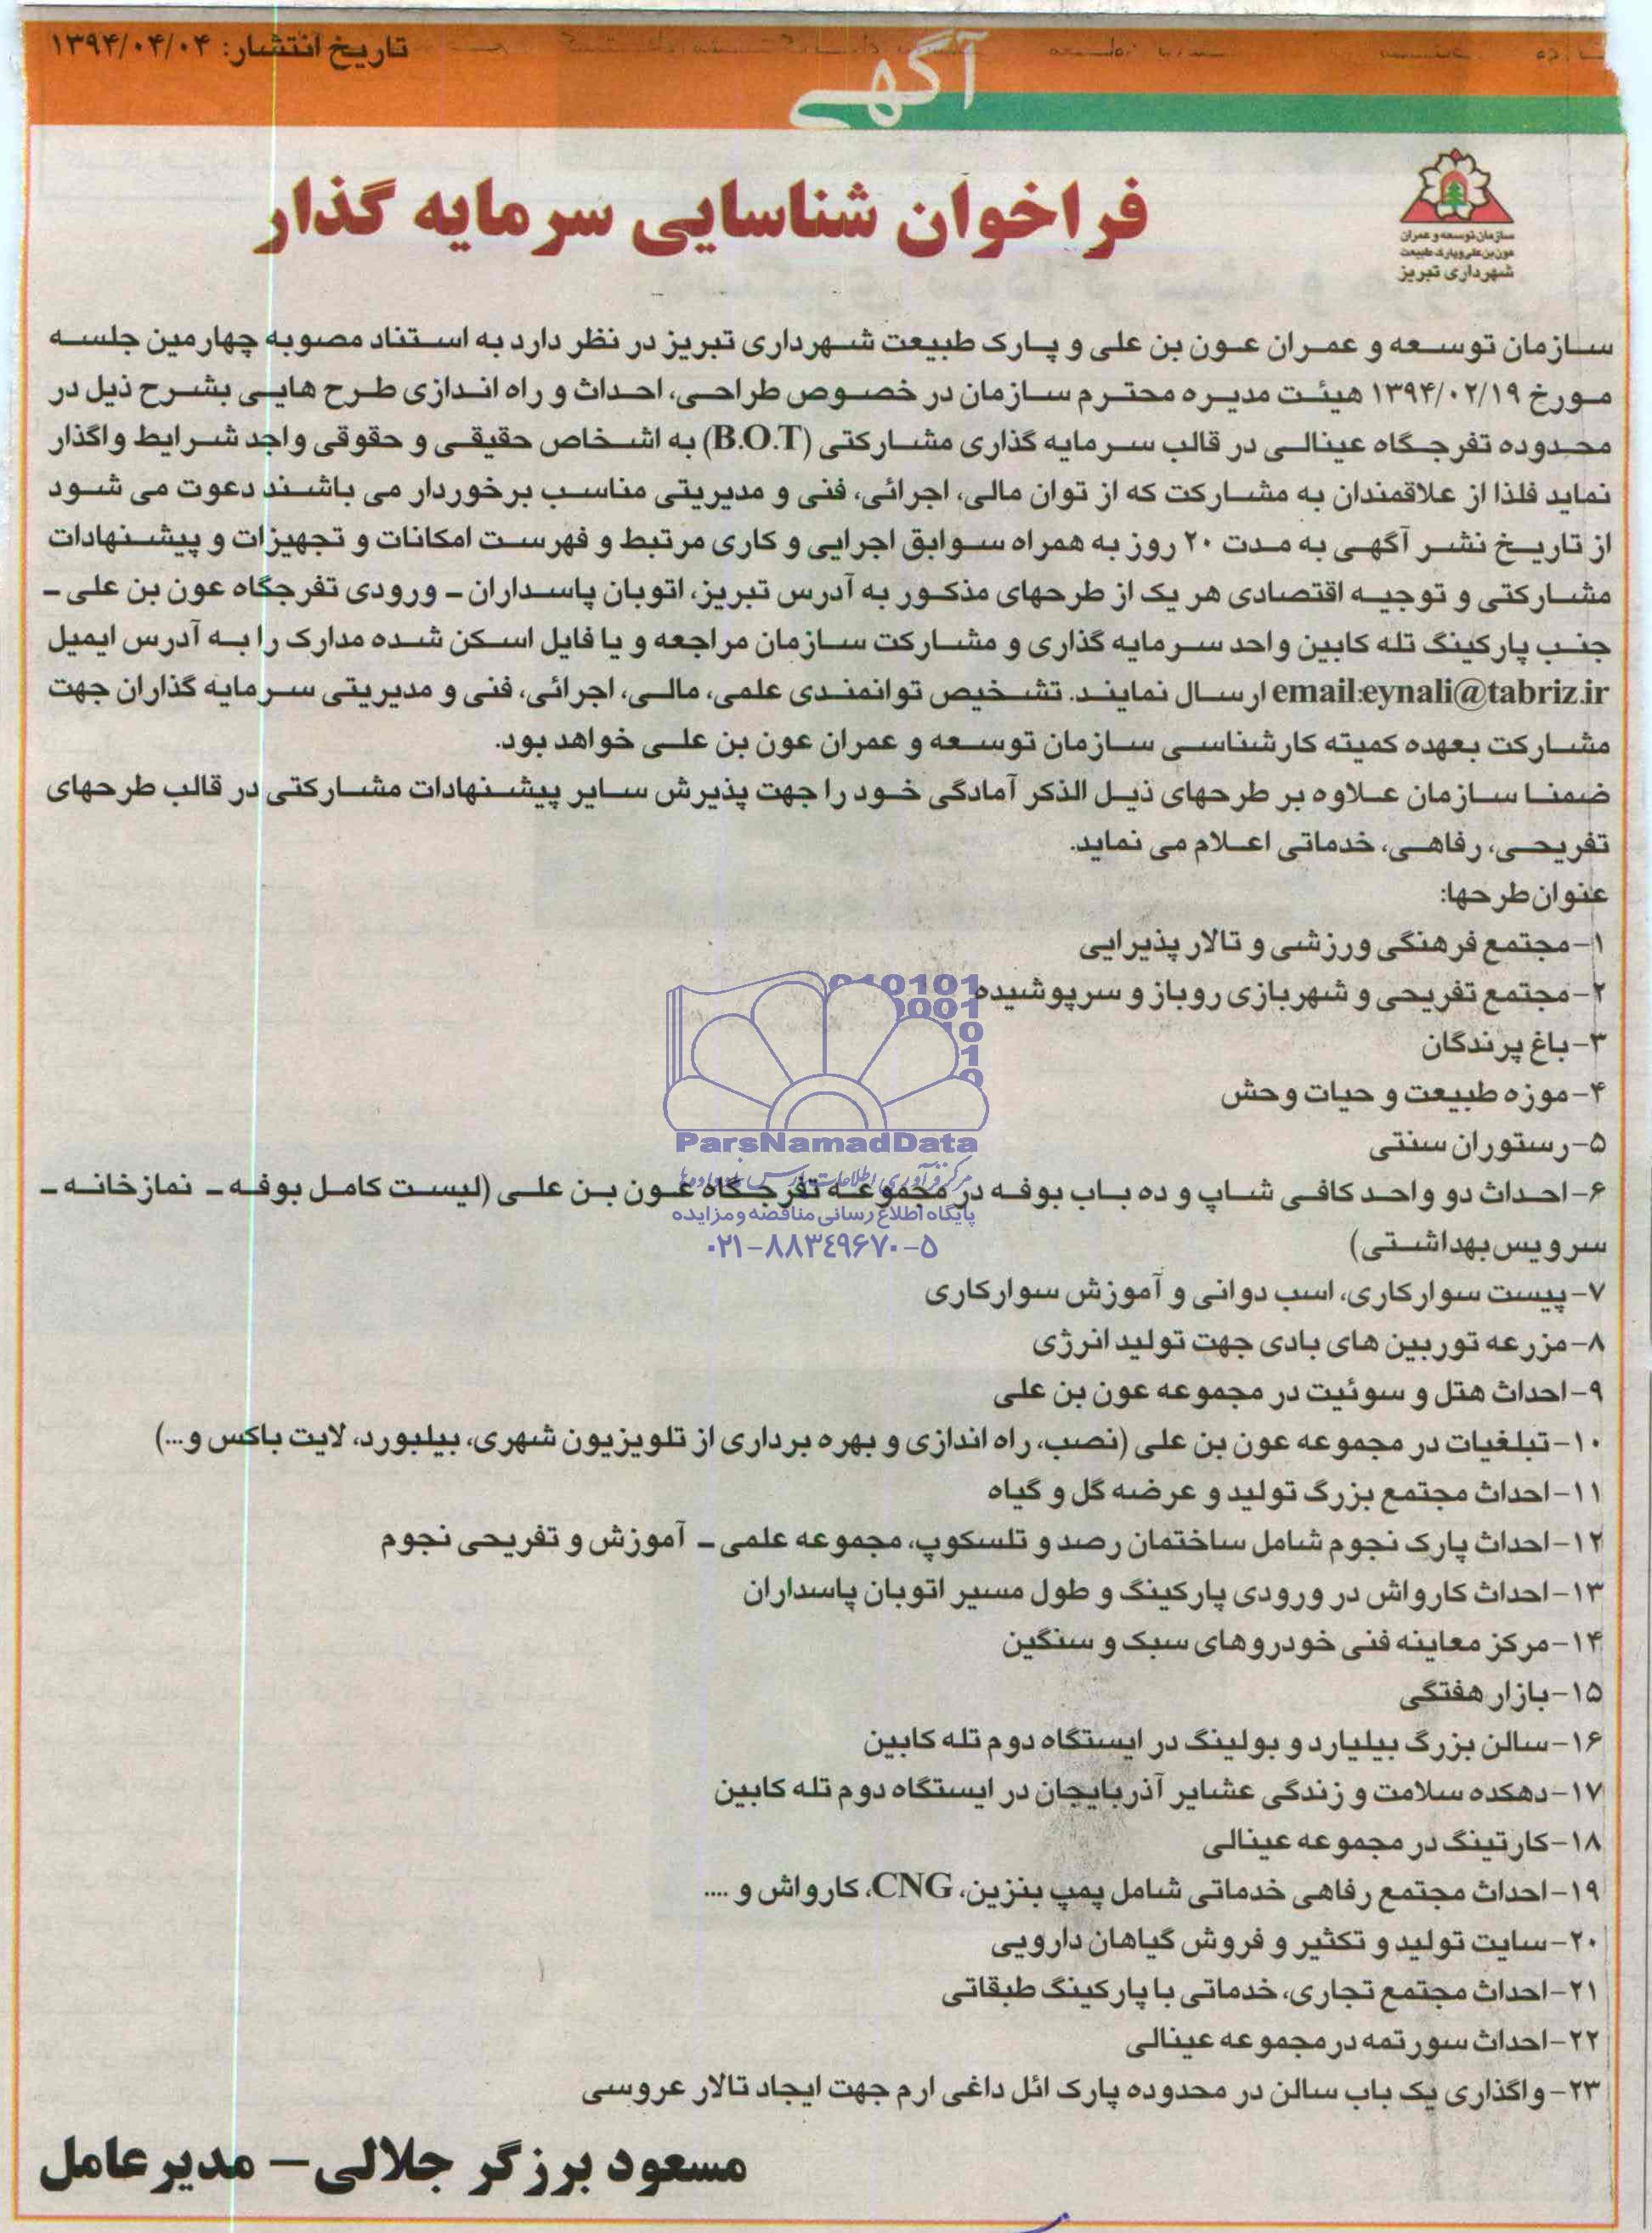 تاریخ انتشار: ۱۳۹۴/۰۴/۰۴
آگهی
سازمان توسعه و عمران
عون بن علی و پارک طبیعت
شهرداری تبریز
فراخوان شناسایی سرمایه گذار
سازمان توسعه و عمران عون بن علی و پارک طبیعت شهرداری تبریز در نظر دارد به استناد مصوبه چهارمین جلسه
مورخ ۱۳۹۴/۰۲/۱۹ هیئت مدیره محترم سازمان در خصوص طراحی، احداث و راه اندازی طرح هایی بشرح ذیل در
محدوده تفرجگاه عینالی در قالب سرمایه گذاری مشارکتی (B.O.T) به اشخاص حقیقی و حقوقی واجد شرایط واگذار
نماید فلذا از علاقمندان به مشارکت که از توان مالی، اجرائی، فنی و مدیریتی مناسب برخوردار می باشند دعوت می شود
از تاریخ نشر آگهی به مدت ۲۰ روز به همراه سوابق اجرایی و کاری مرتبط و فهرست امکانات و تجهیزات و پیشنهادات
مشارکتی و توجیه اقتصادی هر یک از طرحهای مذکور به آدرس تبریز، اتوبان پاسداران - ورودی تفرجگاه عون بن علی -
جنب پارکینگ تله کابین واحد سرمایه گذاری و مشارکت سازمان مراجعه و یا فایل اسکن شده مدارک را به آدرس ایمیل
email:eynali@tabriz.ir ارسال نمایند. تشخیص توانمندی علمی، مالی، اجرائی، فنی و مدیریتی سرمایه گذاران جهت
مشارکت بعهده کمیته کارشناسی سازمان توسعه و عمران عون بن علی خواهد بود.
ضمنا سازمان علاوه بر طرحهای ذیل الذکر آمادگی خود را جهت پذیرش سایر پیشنهادات مشارکتی در قالب طرحهای
تفریحی، رفاهی، خدماتی اعلام می نماید.
عنوان طرحها:
۱- مجتمع فرهنگی ورزشی و تالار پذیرایی
۲- مجتمع تفریحی و شهربازی روباز و سرپوشیده
۳- باغ پرندگان
۴- موزه طبیعت و حیات وحش
۵- رستوران سنتی
۶- احداث دو واحد کافی شاپ و ده باب بوفه در مجموعه تفرجگاه عون بن علی (لیست کامل بوفه - نمازخانه -
سرویس بهداشتی)
۷- پیست سوارکاری، اسب دوانی و آموزش سوارکاری
۸- مزرعه توربین های بادی جهت تولید انرژی
۹- احداث هتل و سوئیت در مجموعه عون بن علی
۱۰- تبلغیات در مجموعه عون بن علی (نصب، راه اندازی و بهره برداری از تلویزیون شهری، بیلبورد، لایت باکس و...)
۱۱- احداث مجتمع بزرگ تولید و عرضه گل و گیاه
۱۲- احداث پارک نجوم شامل ساختمان رصد و تلسکوپ، مجموعه علمی - آموزش و تفریحی نجوم
۱۳- احداث کارواش در ورودی پارکینگ و طول مسیر اتوبان پاسداران
۱۴- مرکز معاینه فنی خودروهای سبک و سنگین
۱۵- بازار هفتگی
۱۶- سالن بزرگ بیلیارد و بولینگ در ایستگاه دوم تله کابین
۱۷- دهکده سلامت و زندگی عشایر آذربایجان در ایستگاه دوم تله کابین
۱۸- کارتینگ در مجموعه عینالی
۱۹- احداث مجتمع رفاهی خدماتی شامل پمپ بنزین، CNG، کارواش و ....
۲۰- سایت تولید و تکثیر و فروش گیاهان دارویی
۲۱- احداث مجتمع تجاری، خدماتی با پارکینگ طبقاتی
۲۲- احداث سورتمه در مجموعه عینالی
۲۳- واگذاری یک باب سالن در محدوده پارک ائل داغی ارم جهت ایجاد تالار عروسی
مسعود برزگر جلالی - مدیرعامل
ParsNamadData
مرکز فرآوری اطلاعات پارس نماد داده ها
پایگاه اطلاع رسانی مناقصه و مزایده
۰۲۱-۸۸۳۴۹۶۷۰-۵